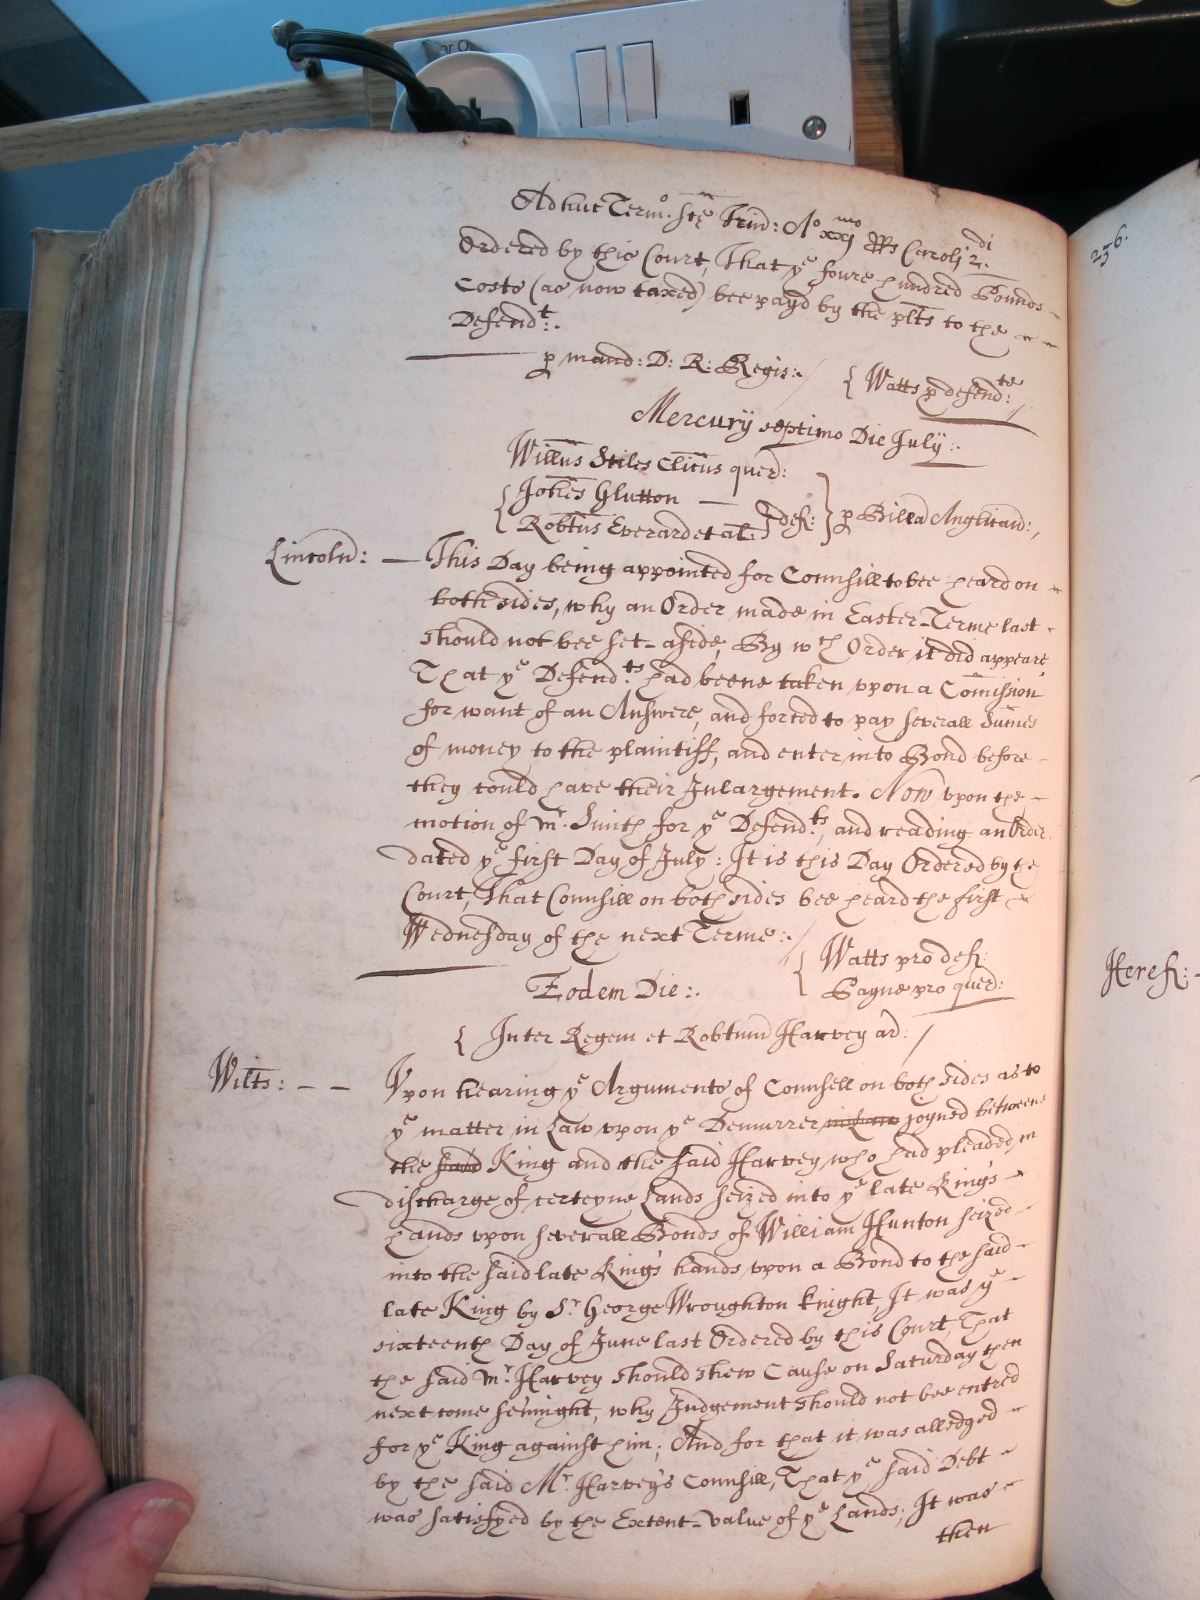 Adhuc Termo. Sce Trin̄d: Ao xxjmo RRs Caroli 2di.
Ordered by this Court, That ye foure hundred Pounds
Costs (as now taxed) bee payd by the plts to the
Defendt:.
p mand: D: R: Regis:.
{ Watts p defendte:
Mercurij septimo Die Julij:.
Willus Stiles Clicus quer:
{ Johes Glutton —
Robtus Everard et al: } def: } p Billa Anglican:,
Lincoln: — This Day being appointed for Counsill to bee heard on
both sides, why an Order made in Easter-Terme last
should not bee set-aside, By wch Order it did appeare
That ye Defendts had beene taken upon a Comission
for want of an Answere, and forced to pay severall Sumes
of money to the plaintiff, and enter into Bond before
they could have their Inlargement. Now upon the
motion of Mr. Smith for ye Defendts, and reading an Order
dated ye first Day of July: It is this Day Ordered by the
Court, That Counsill on both sides bee heard the first
Wednesday of the next Terme:.
{ Watts pro def:
Payne pro quer:
Eodem Die:.
{ Inter Regem et Robtum Harvey ar:
Wilts: — — Upon hearing ye Arguments of Counsell on both sides as to
ye matter in Law upon ye Demurrer in Law joyned betweene
the said King and the said Harvey, who had pleaded in
discharge of certeyne Lands seized into ye late Kings
hands upon severall Bonds of William Hunton seized
into the said late King's hands upon a Bond to the said
late King by Sr George Wroughton knight, It was ye
sixteenth Day of June last Ordered by this Court, That
the said Mr. Harvey should shew Cause on Saturday then
next come se'nnight, why Judgement should not bee entred
for ye King against him; And for that it was alledged
by the said Mr Harvey's Counsill, That ye said Debt
was satisfyed by the Extent-value of ye Lands; It was
then
256.
Heref:-